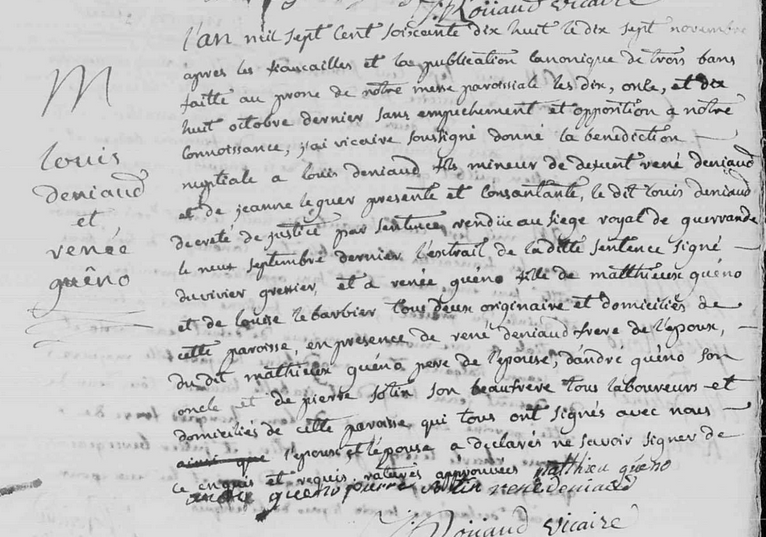 Roüaud vicaire
M
louis
deniaud
et
renée
guéno
l'an mil sept cent soixante dix huit le dix sept novembre
apres les fiancailles et la publication canonique de trois bans
faitte au prone de notre messe paroissiale les dix, onze, et dix
huit octobre dernier sans empechement et opposition a notre
connoissance, j'ai vicaire soussigné donné la benediction
nuptiale a louis deniaud fils mineur de defunt rené deniaud
et de jeanne leguer presente et consantante, le dit louis deniaud
decreté de justice par sentence rendüe au siege royal de guerrande
le neuf septembre dernier l'extrait de la ditte sentence signé
duvivier greffier, et a renée guéno fille de matthieux guéno
et de louise lebarbier tous deux originaire et domiciliés de
cette paroisse, en presence de rené deniaud frere de l'epoux,
du dit mathieux guéno pere de l'epouse, dandré guéno son
oncle et de pierre son beaufrere tous laboureurs et
domiciliés de cette paroisse qui tous ont signés avec nous
ainsi que l'epoux et l'épouse a declarés ne savoir signer de
ce enquis et requis, raturés approuvées matthieu guéno
andré guéno pierre rené deniaud
Roüaud vicaire